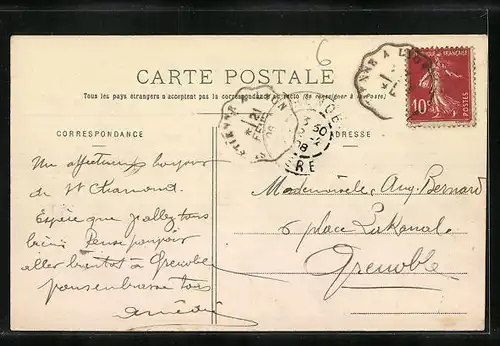 6
CARTE POSTALE
Tous les pays étrangers n'acceptent pas la correspondance au recto (Se renseigner à la Poste)
CORRESPONDANCE
ADRESSE
Un affectueux bonjour
de St Chamond.
Espère que j'allez tous
bien. Pense pouvoir
aller bientôt à Grenoble
vous embrasse tous
Amédée
Mademoiselle Aug. Bernard
6 place Lakanal
Grenoble
10c
POSTES
ETIENNE
LYON
21
ÉTIENNE À LYON
GRENOBLE
ISÈRE
08